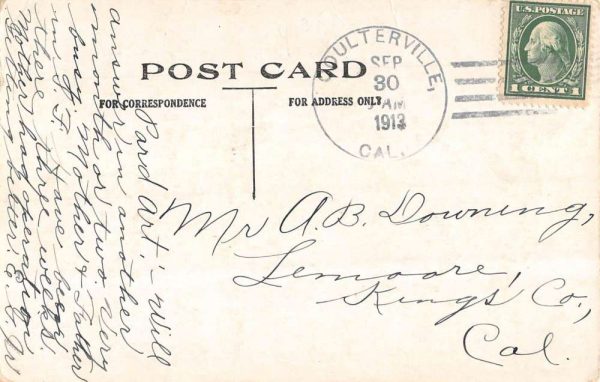 POST CARD
FOR CORRESPONDENCE
FOR ADDRESS ONLY
COULTERVILLE,
SEP
30
AM
1913
CAL.
U.S. POSTAGE
1 CENT 1
Mr A. B. Downing,
Lemoore,
Kings Co.,
Cal.
Pard Art:- Will
answer in another
month or two. Very
busy. Mother & Father
in S. F. Have been
there three weeks.
Mother had operation
Getting better